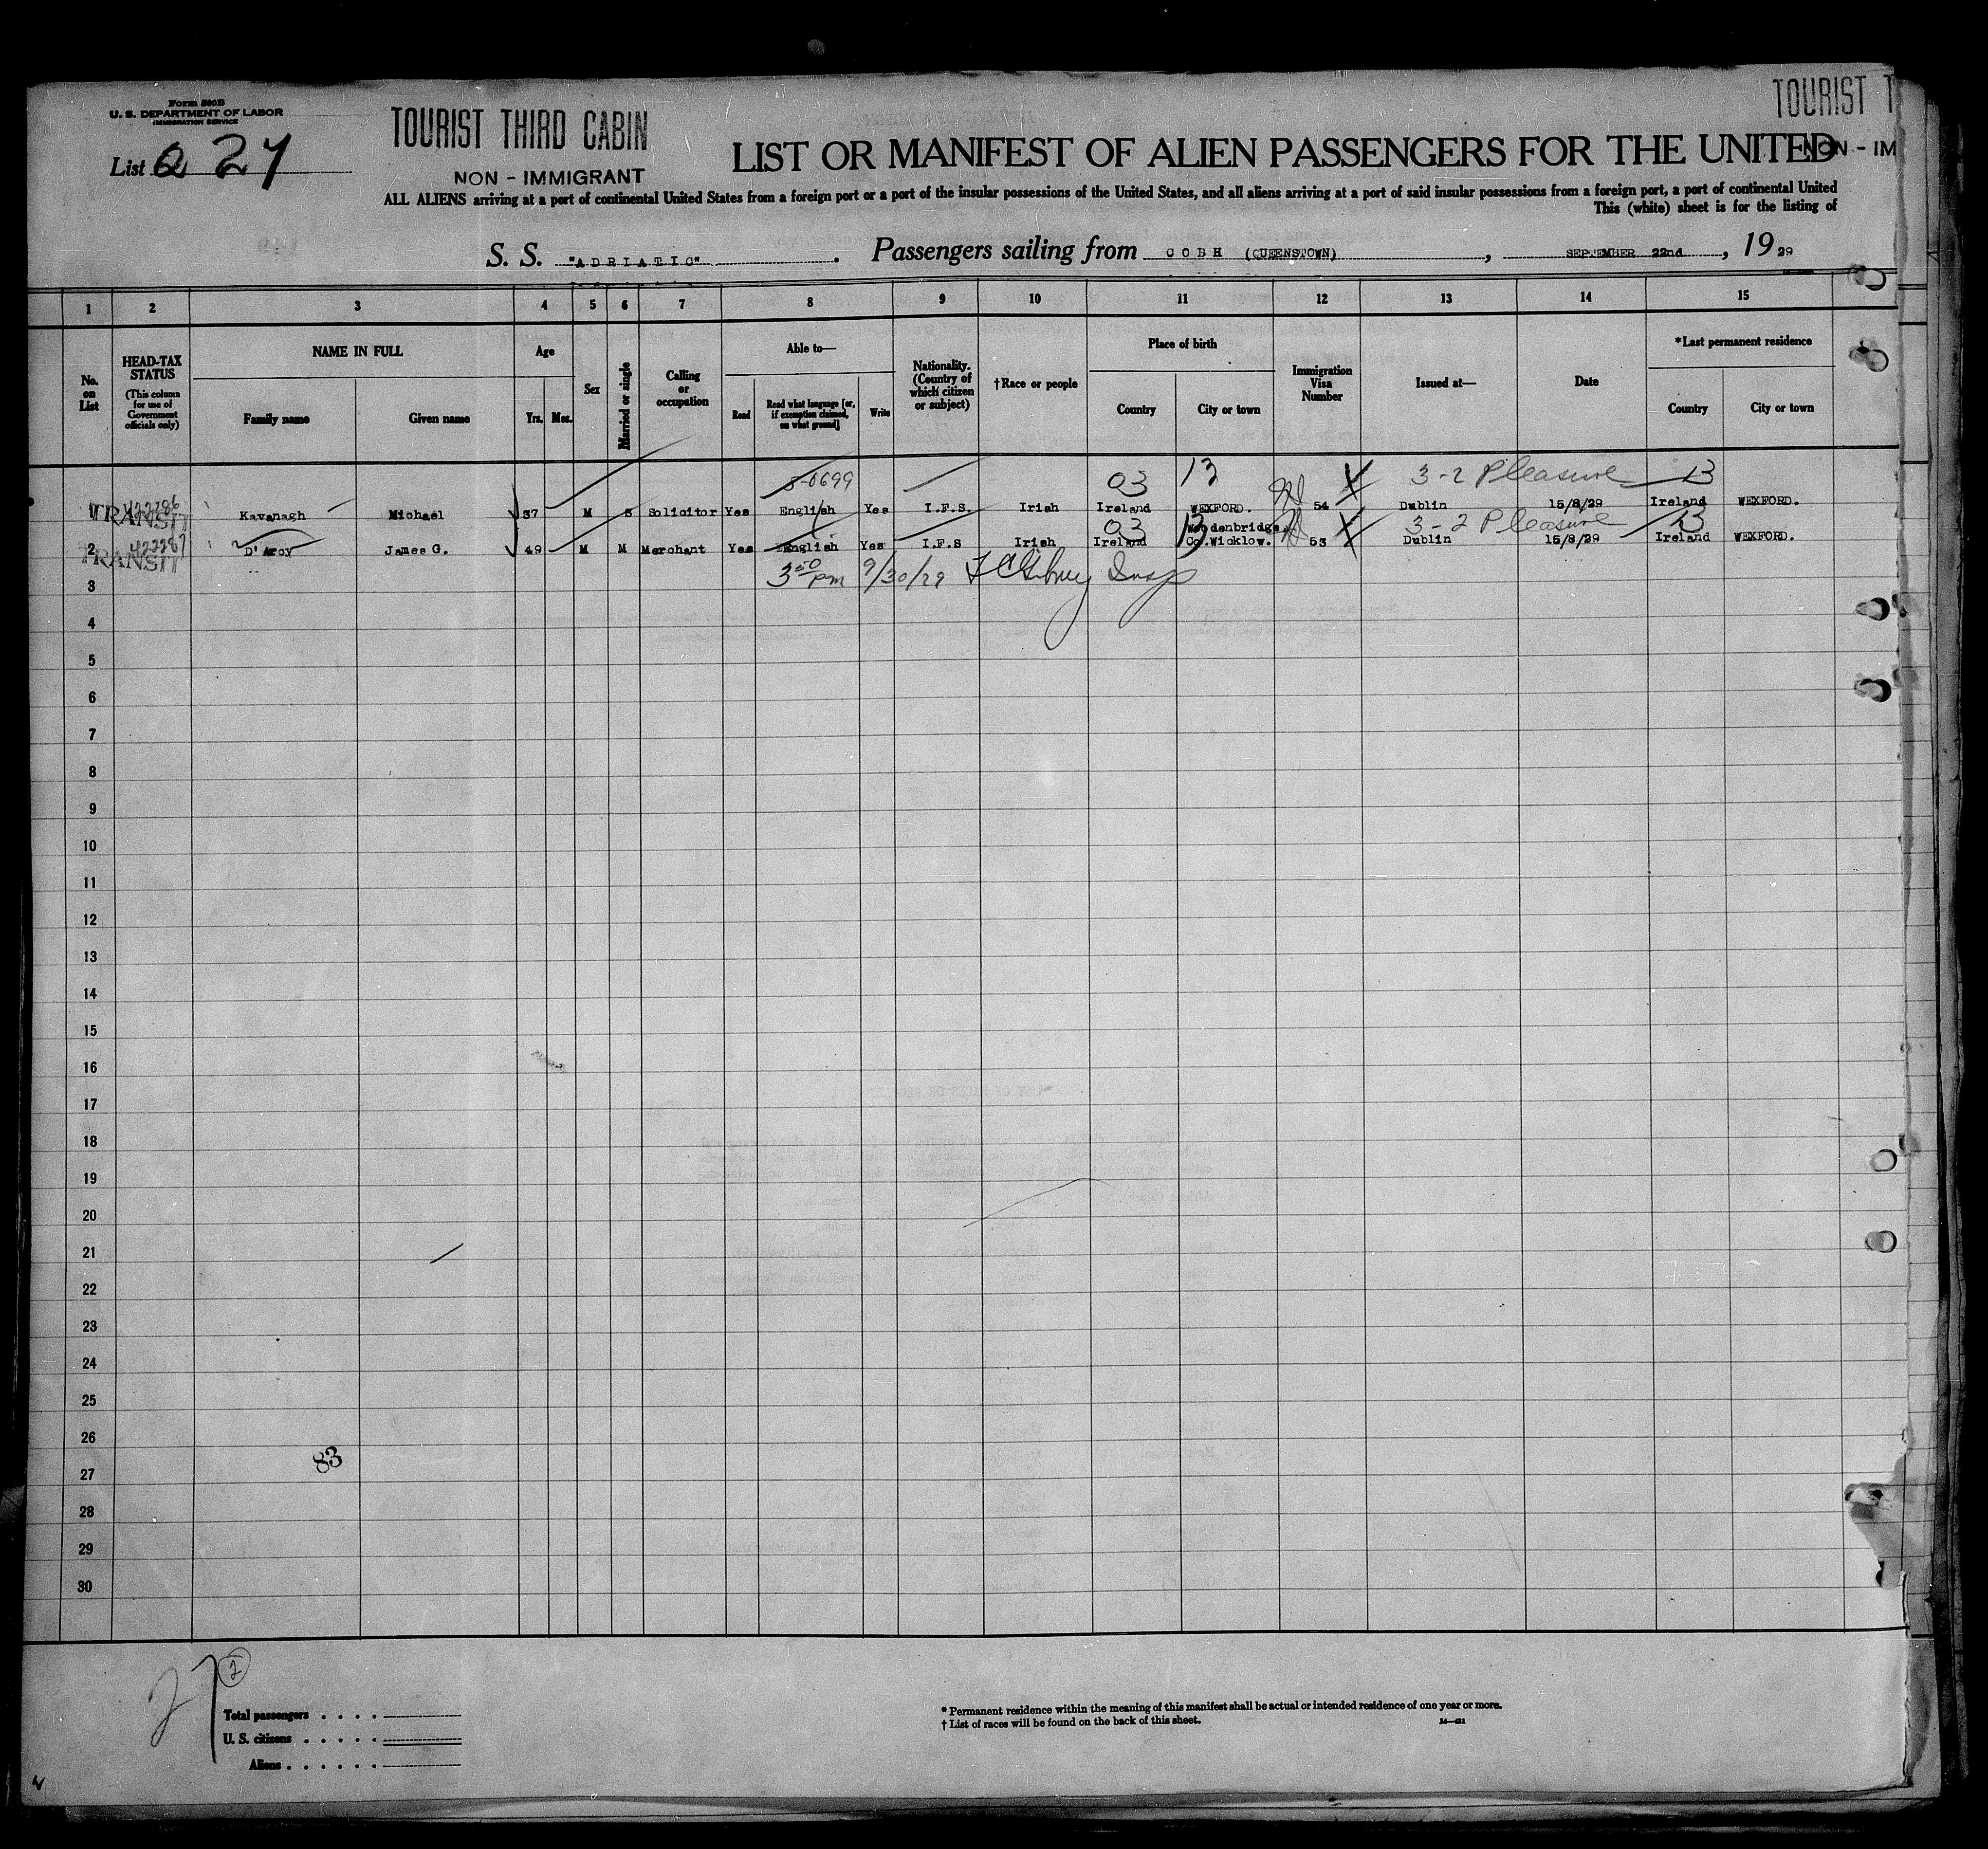 Form 500B
U. S. DEPARTMENT OF LABOR
IMMIGRATION SERVICE
List 2 27
TOURIST THIRD CABIN
NON - IMMIGRANT
TOURIST T
NON - IM
LIST OR MANIFEST OF ALIEN PASSENGERS FOR THE UNITED
ALL ALIENS arriving at a port of continental United States from a foreign port or a port of the insular possessions of the United States, and all aliens arriving at a port of said insular possessions from a foreign port, a port of continental United
This (white) sheet is for the listing of
S. S. "ADRIATIC". Passengers sailing from COBH (QUEENSTOWN), SEPTEMBER 22nd, 1929
1 2 3 4 5 6 7 8 9 10 11 12 13 14 15
No. on List
HEAD-TAX STATUS
(This column for use of Government officials only)
NAME IN FULL
Family name Given name
Age
Yrs. Mos.
Sex
Married or single
Calling or occupation
Able to—
Read
Read what language [or, if exemption claimed, on what ground]
Write
Nationality. (Country of which citizen or subject)
†Race or people
Place of birth
Country City or town
Immigration Visa Number
Issued at—
Date
*Last permanent residence
Country City or town
5-0699 03 13 3-2 Pleasure 13
1 TRANSIT 422286 Kavanagh Michael 37 M S Solicitor Yes English Yes I.F.S. Irish Ireland WEXFORD. 54 Dublin 15/8/29 Ireland WEXFORD.
03 13 3-2 Pleasure 13
2 TRANSIT 422287 D'Arcy James G. 49 M M Merchant Yes English Yes I.F.S Irish Ireland Woodenbridge, Co.Wicklow. 53 Dublin 15/8/29 Ireland WEXFORD.
3 3 50 pm 9/30/29 Insp
4
5
6
7
8
9
10
11
12
13
14
15
16
17
18
19
20
21
22
23
24
25
26
83
27
28
29
30
27 2
Total passengers . . . .
U. S. citizens . . . . .
Aliens . . . . . .
* Permanent residence within the meaning of this manifest shall be actual or intended residence of one year or more.
† List of races will be found on the back of this sheet.